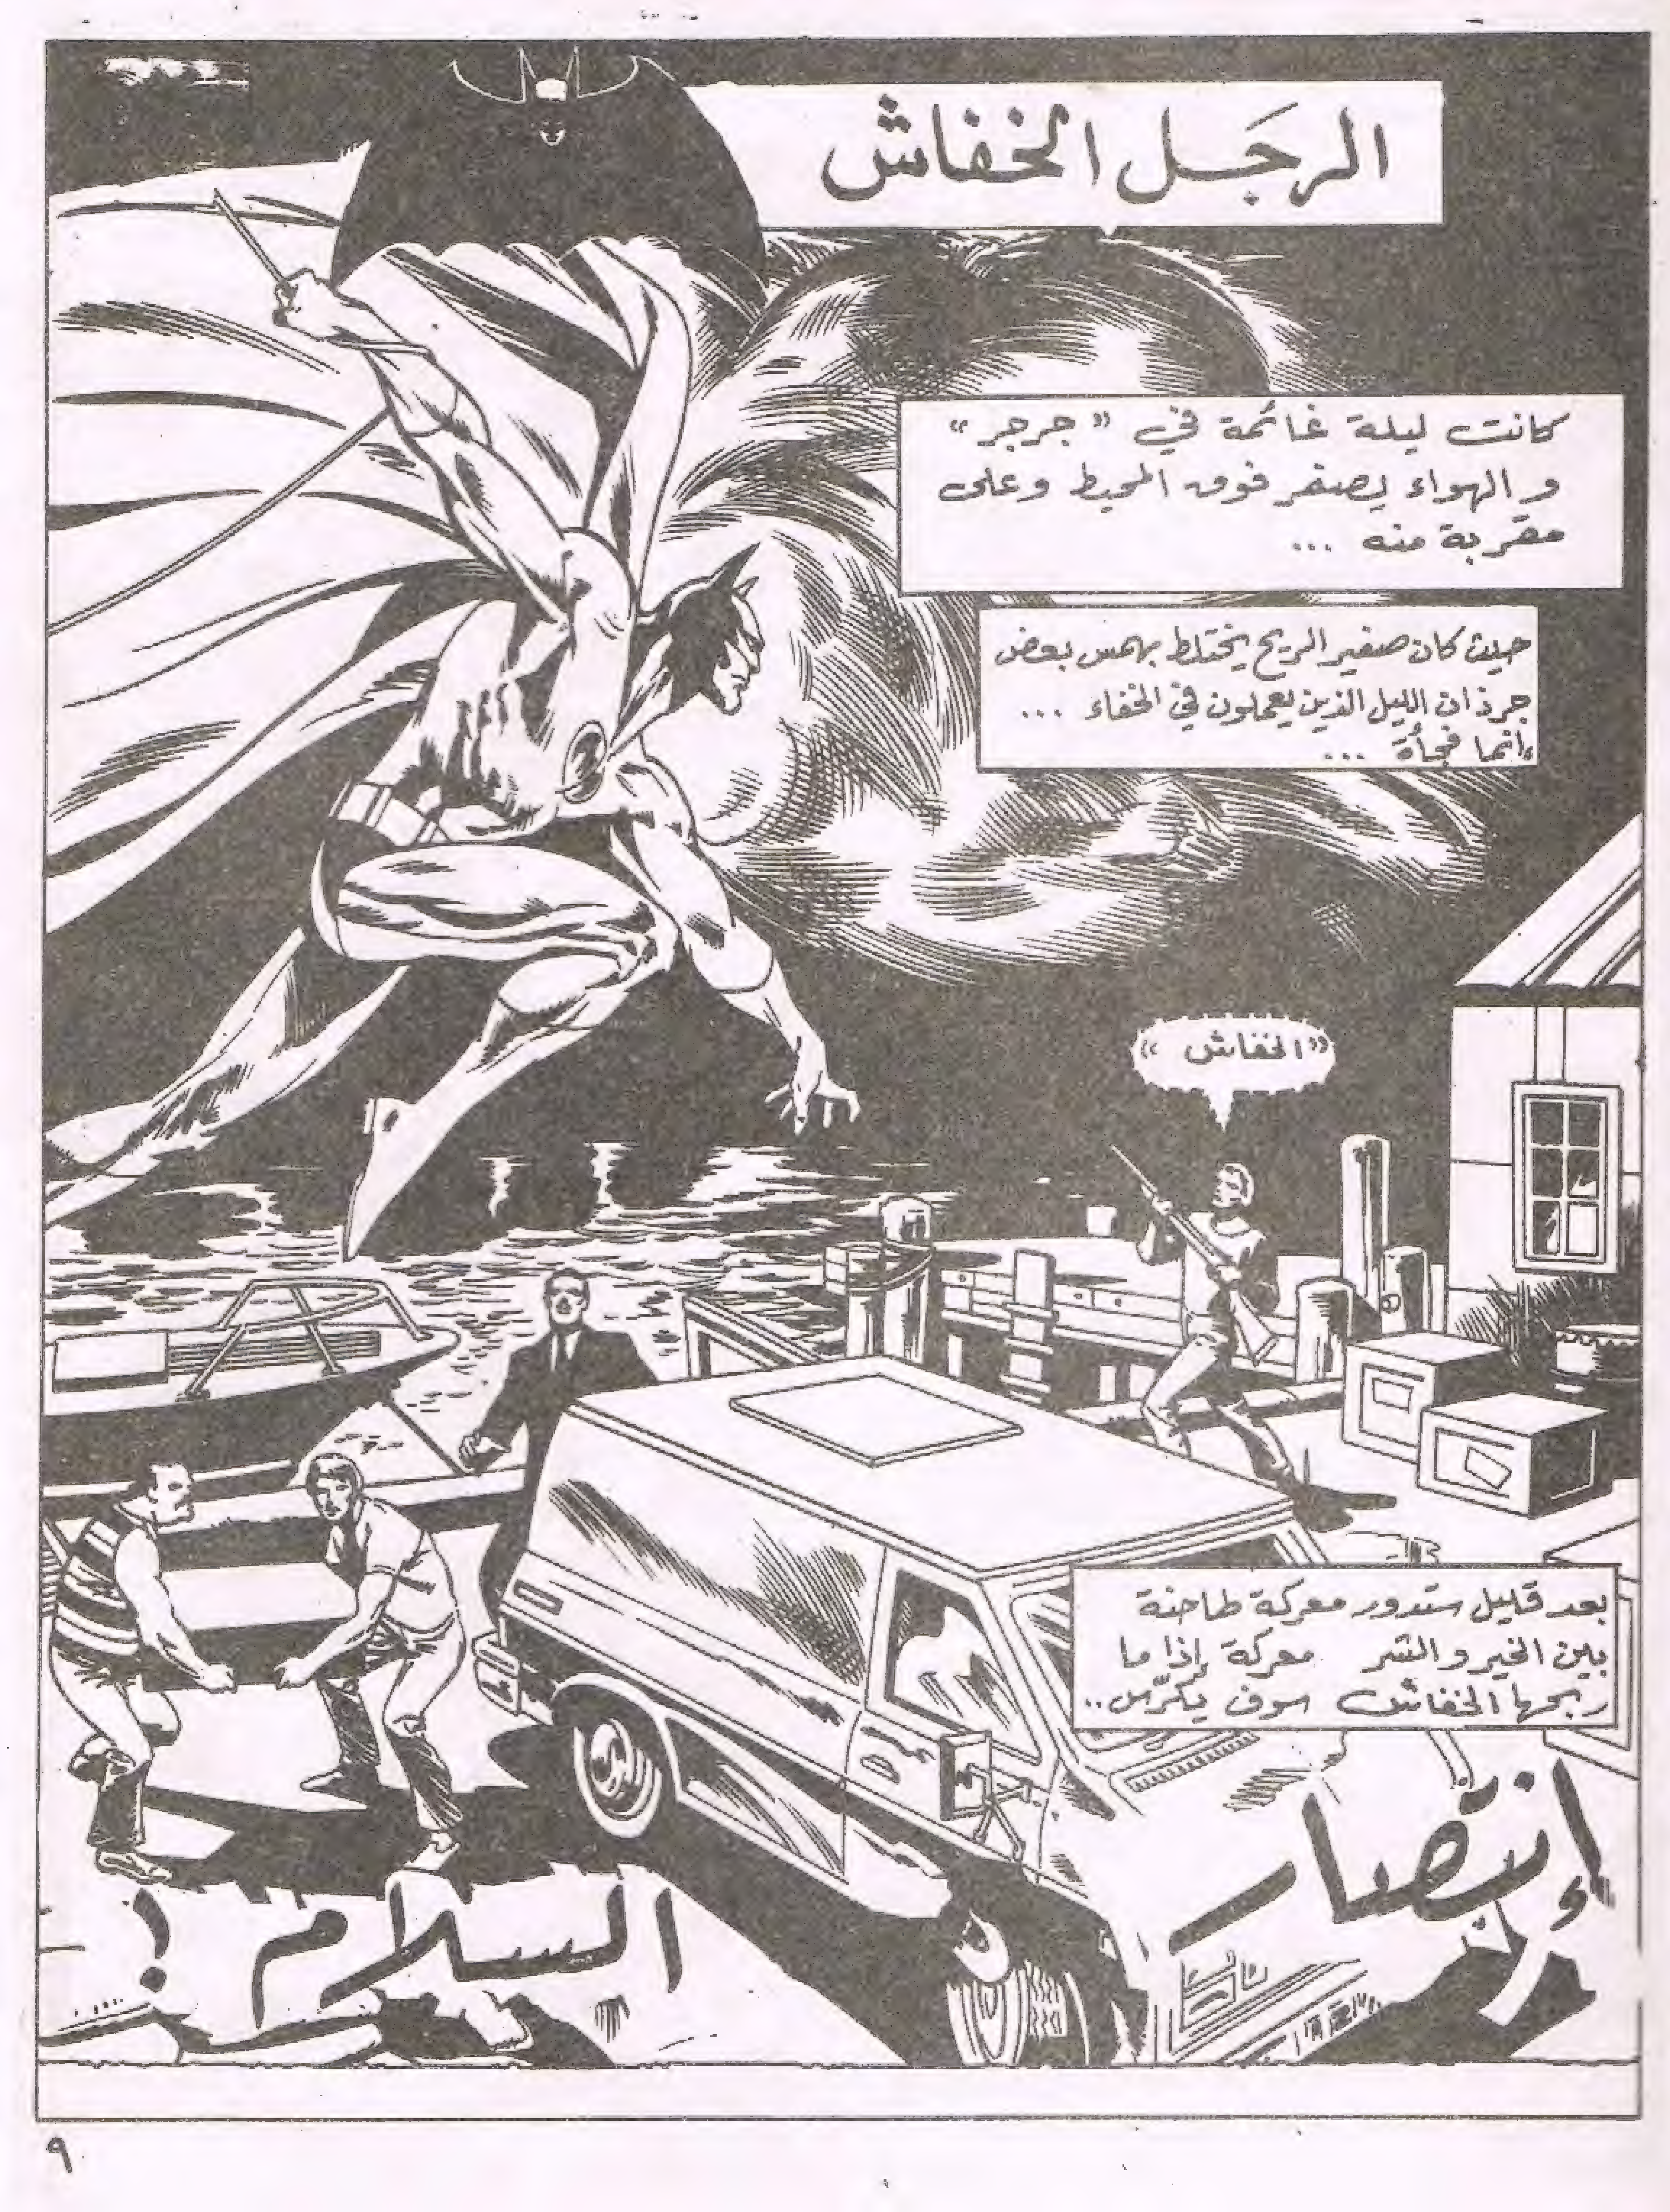 الرجَل الخفاش
كانت ليلة غائمة في "جرجر"
و الهواء يصفر فوق المحيط وعلى
مقربة منه ...
حيث كان صفير الريح يختلط بهمس بعض
جرذان الليل الذين يعملون في الخفاء ...
إنما فجأة ...
«الخفاش»
بعد قليل ستدور معركة طاحنة
بين الخير و الشر معركة إذا ما
ربحها الخفاش سوف يكرّس..
إنتصار
السلام !
٩